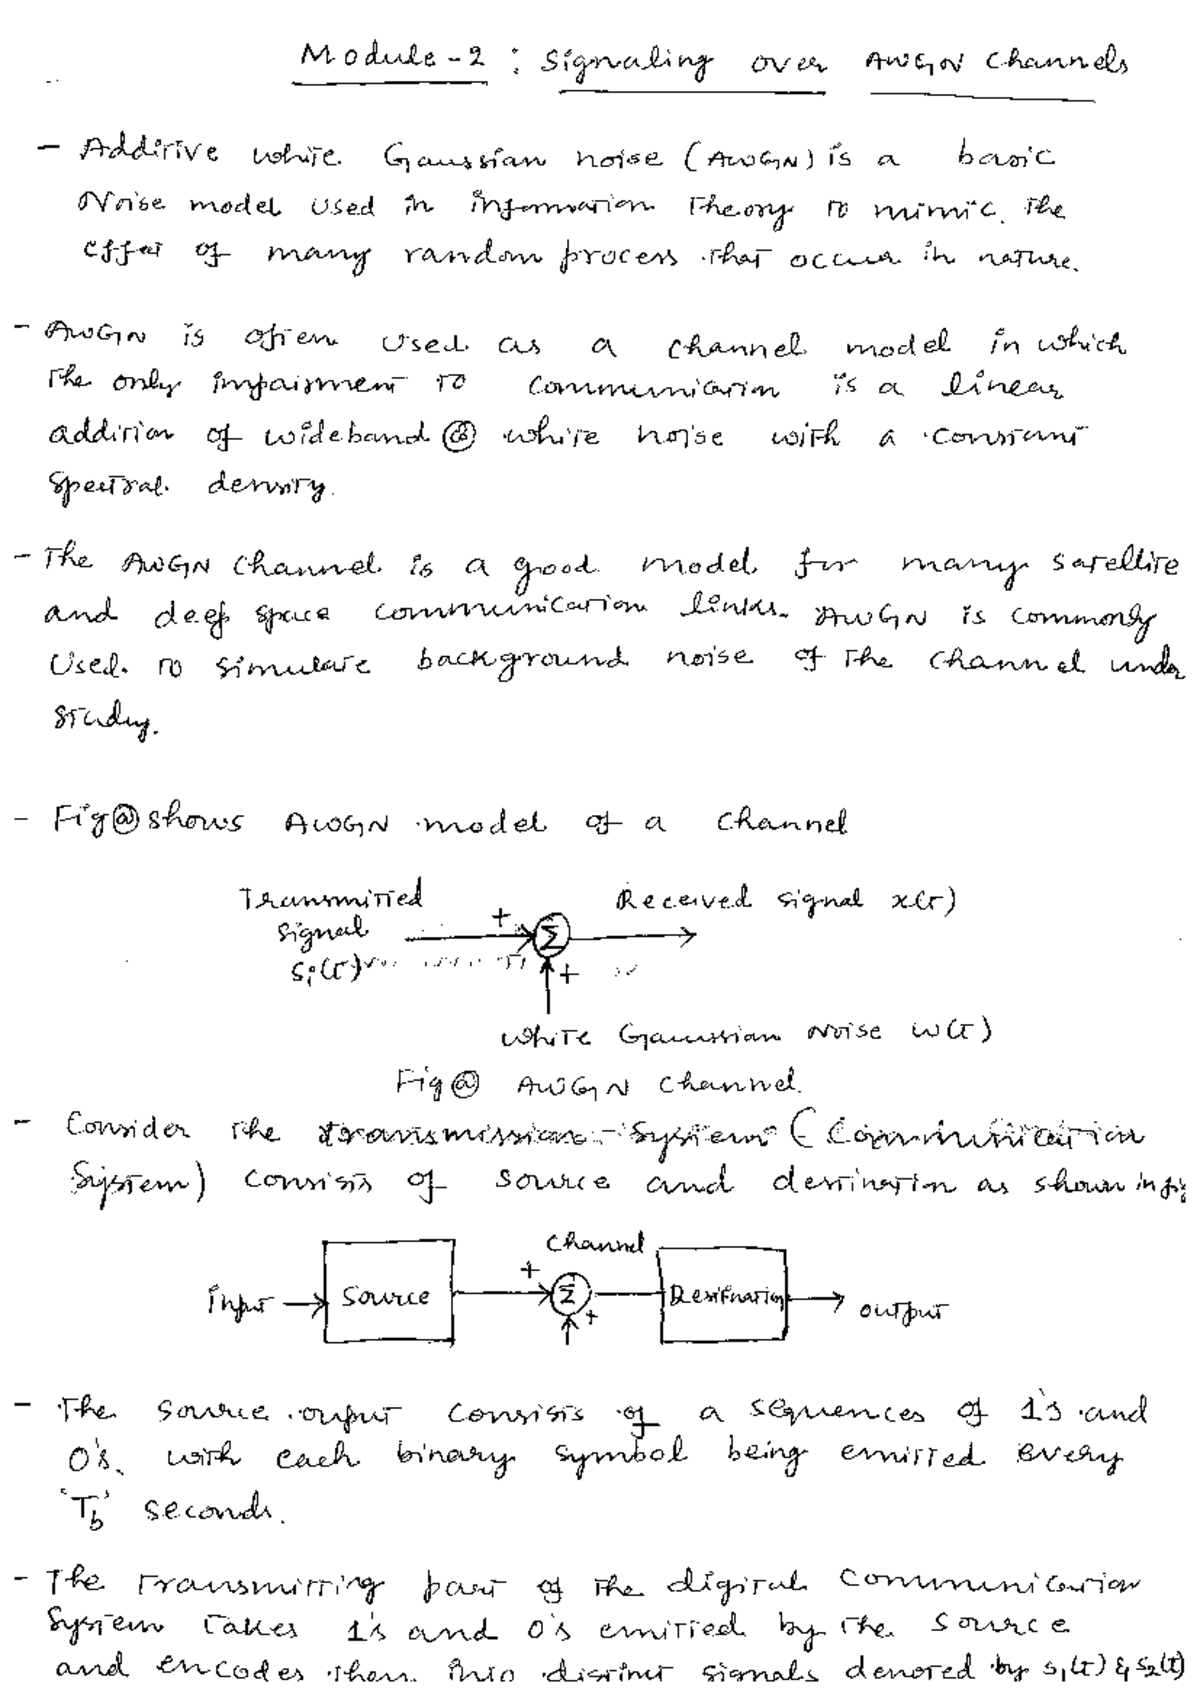 Module-2 : Signaling over AWGN Channels
- Additive white Gaussian noise (AWGN) is a basic
Noise model used in information Theory to mimic the
effect of many random process that occur in nature.
- AWGN is often used as a channel model in which
the only impairment to communication is a linear
addition of wideband or white noise with a constant
spectral density.
- The AWGN channel is a good model for many satellite
and deep space communication links. AWGN is commonly
used to simulate background noise of the channel under
study.
- Fig (a) shows AWGN model of a channel
Transmitted
signal
si(t)
+
Σ
+
Received signal x(t)
White Gaussian Noise w(t)
Fig (a) AWGN Channel.
- Consider the transmission system (Communication
System) consists of source and destination as shown in fig
Input
Source
+
Channel
Σ
+
Destination
output
- The source output consists of a sequences of 1's and
0's, with each binary symbol being emitted every
'Tb' seconds.
- The Transmitting part of the digital communication
system takes 1's and 0's emitted by the source
and encodes them into distinct signals denoted by s1(t) & s2(t)